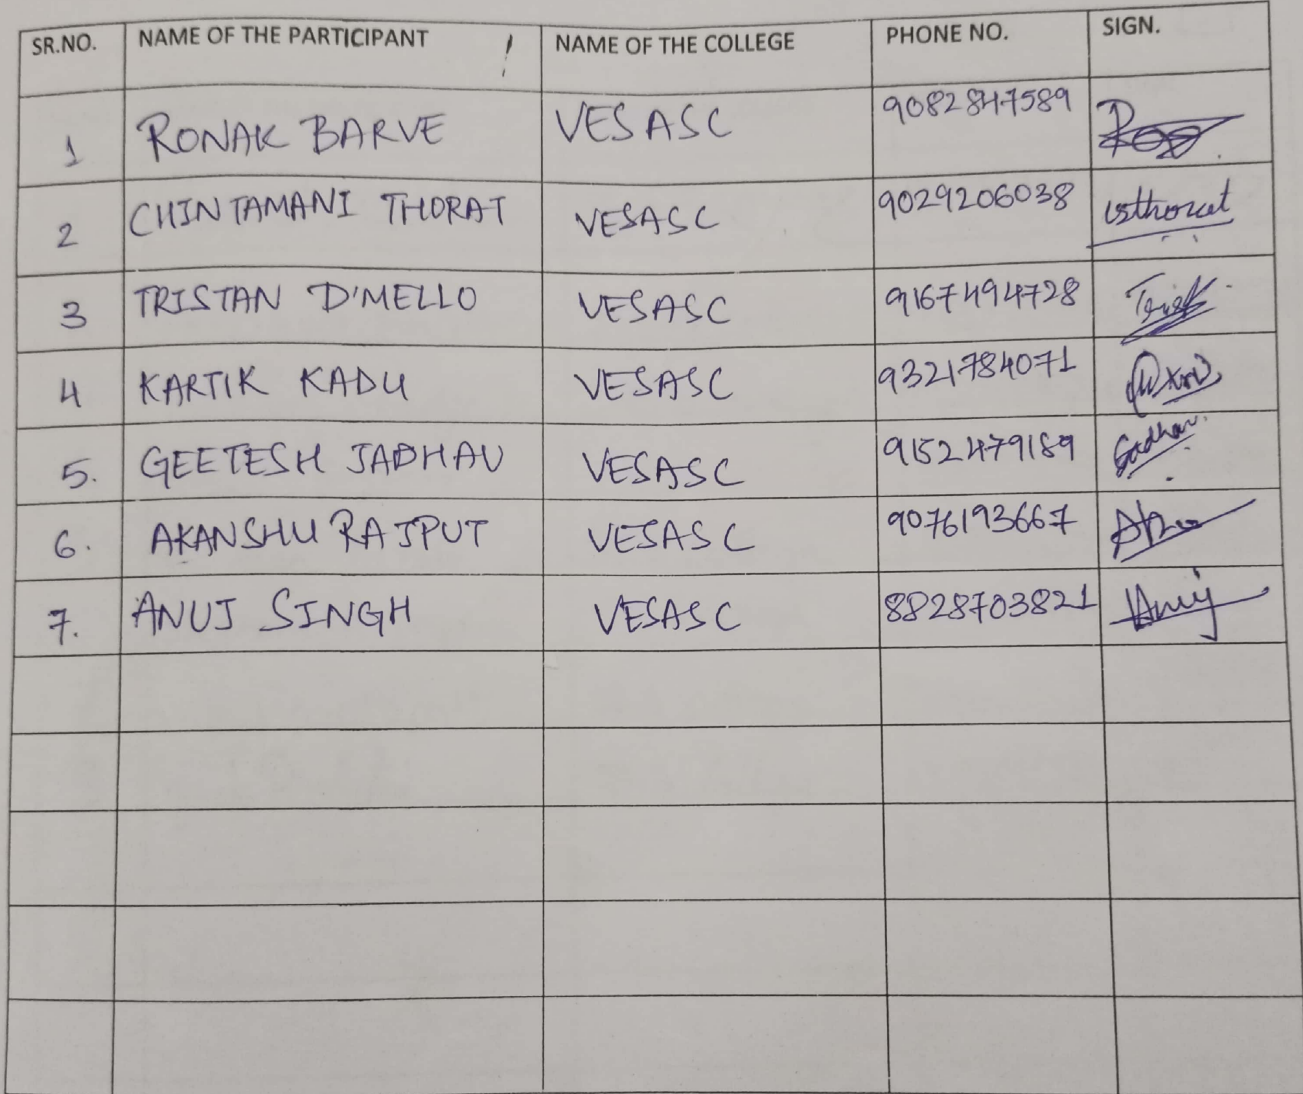 SR.NO. NAME OF THE PARTICIPANT NAME OF THE COLLEGE PHONE NO. SIGN.
1 RONAK BARVE VESASC 9082847589
2 CHINTAMANI THORAT VESASC 9029206038
3 TRISTAN D'MELLO VESASC 9167494728
4 KARTIK KADU VESASC 9321784071
5. GEETESH JADHAV VESASC 9152479189
6. AKANSHU RAJPUT VESASC 9076193667
7. ANUJ SINGH VESASC 8828703821